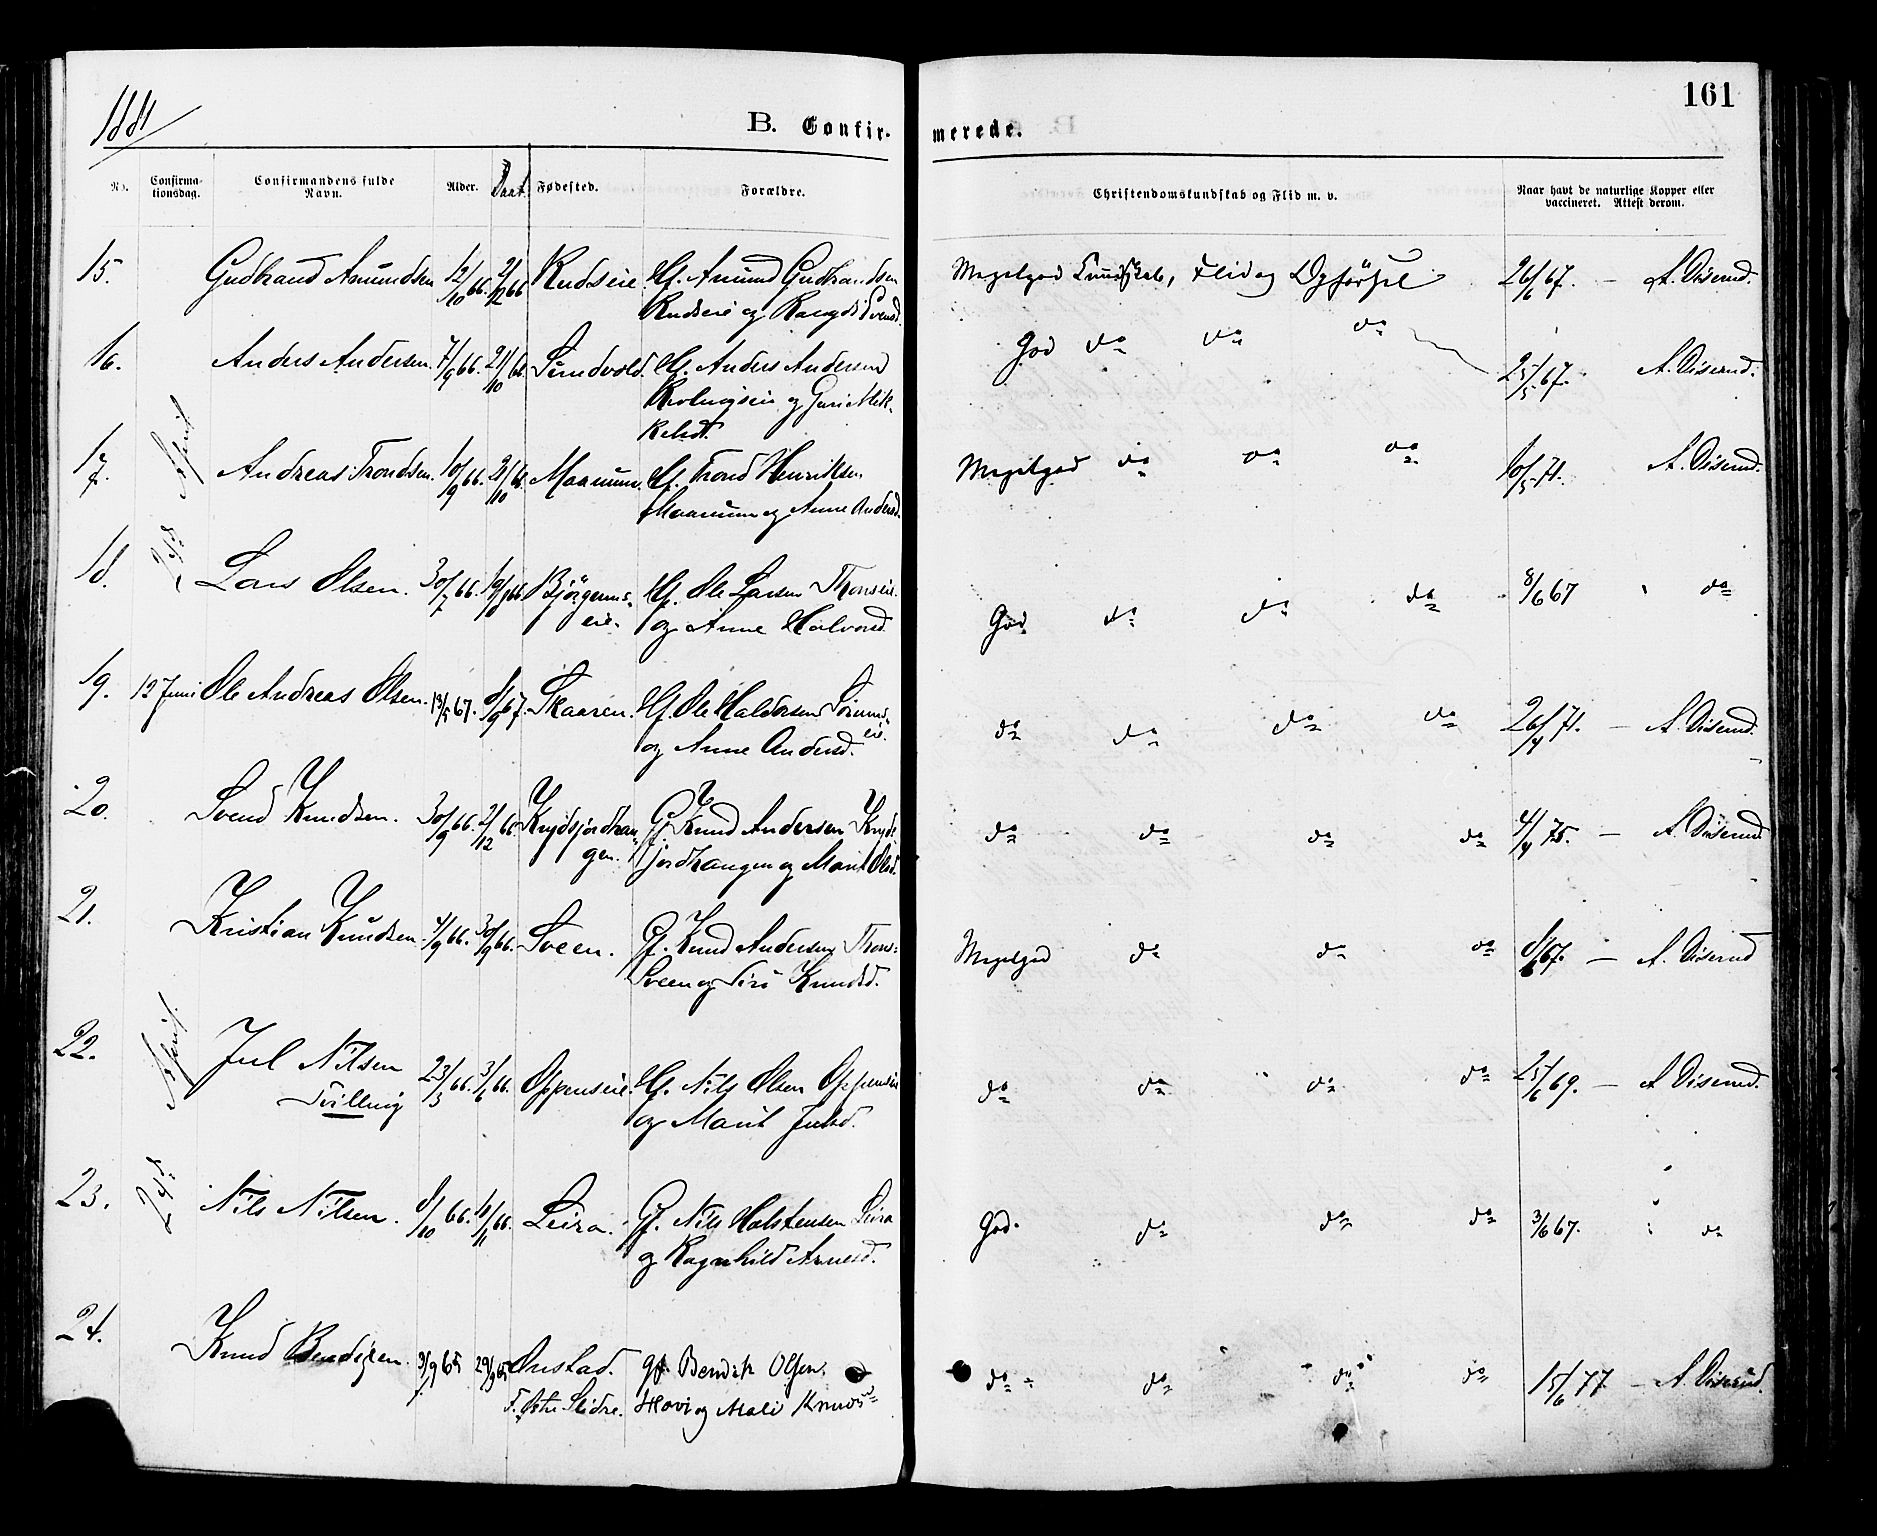 1881
161
B. Confir-
merede.
No.
Confirma-
tionsdag.
Confirmandens fulde
Navn.
Alder.
Daab
Fødested.
Forældre.
Christendomskundskab og Flid m. v.
Naar havt de naturlige Kopper eller
vaccineret. Attest derom.
15. Gudbrand Amundsen 12/10 66. 2/12 66 Rudseie Gf. Amund Gudbrandsen
Rudseie og
Megetgod Kundskab, Flid og Opførsel 26/6 67. — A. Diserud.
16. Anders Andersen. 7/9 66. 21/10 66. Sundvold. Gf. Anders Andersen
og Guri Mik-
kelsdt.
God do do do 25/5 67. A. Diserud.
17. Andreas Trondsen. 10/9 66. 21/10 66. Moenum. Gf. Trond Henriksen
Moenum og Anne Andersd.
Megetgod do do do 10/5 71. A. Diserud.
18. Lars Olsen. 30/7 66. Bjørgerns-
eie. Gf. Ole Larsen Thonseie
og Anne Halvorsd.
God do do do 8/6 67 " do
19. 12 Juni Ole Andreas Olsen. 13/5 67. 8/9 67. Skaaren. Gf. Ole Haldorsen
eie.
og Anne Andersd.
do do do do 26/4 71. — A. Diserud.
20. Svend Knudsen. 30/9 66. 2/12 66. Krydsjordhan-
gen. Gf Knud Andersen Kryds
jordhangen og Marit Olsd.
do do do do 4/4 75. — A. Diserud
21. Kristian Knudsen 4/9 66. 30/9 66. Sveen. Gf. Knud Andersen Thons-
Sveen og Siri Knudsd.
Megetgod do do do 8/6 67. — A. Diserud
22. Jul Nilsen 23/3 66. 3/6 66. Oppenseie. Gf. Nils Olsen Oppenseie
Tvilling
og Marit Julsd.
do do do do 25/6 69. — A Diserud.
23. Nils Nilsen. 8/10 66. Leira. Gf. Nils Halstensen Leira
og Ragnhild Arnesd.
God. do do do 3/6 67. " do
24. Knud Bendiksen. Onstad. gf. Bendik Olsen
F. Østre Slidre. Hovi og Mali Knudsd
do do do do 15/6 77 — A. Diserud.